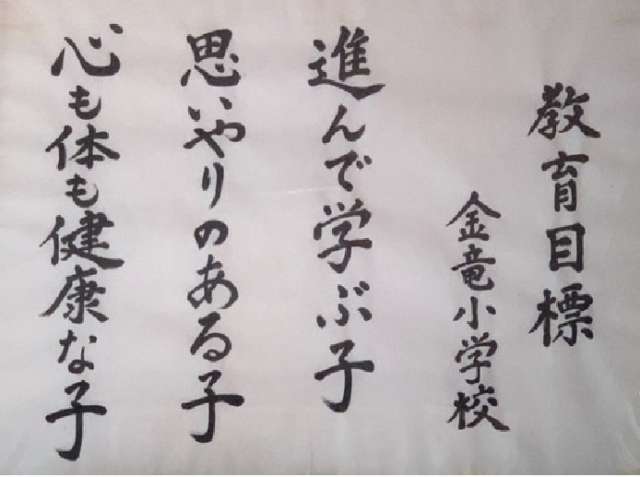 教育目標
金竜小学校
進んで学ぶ子
思いやりのある子
心も体も健康な子